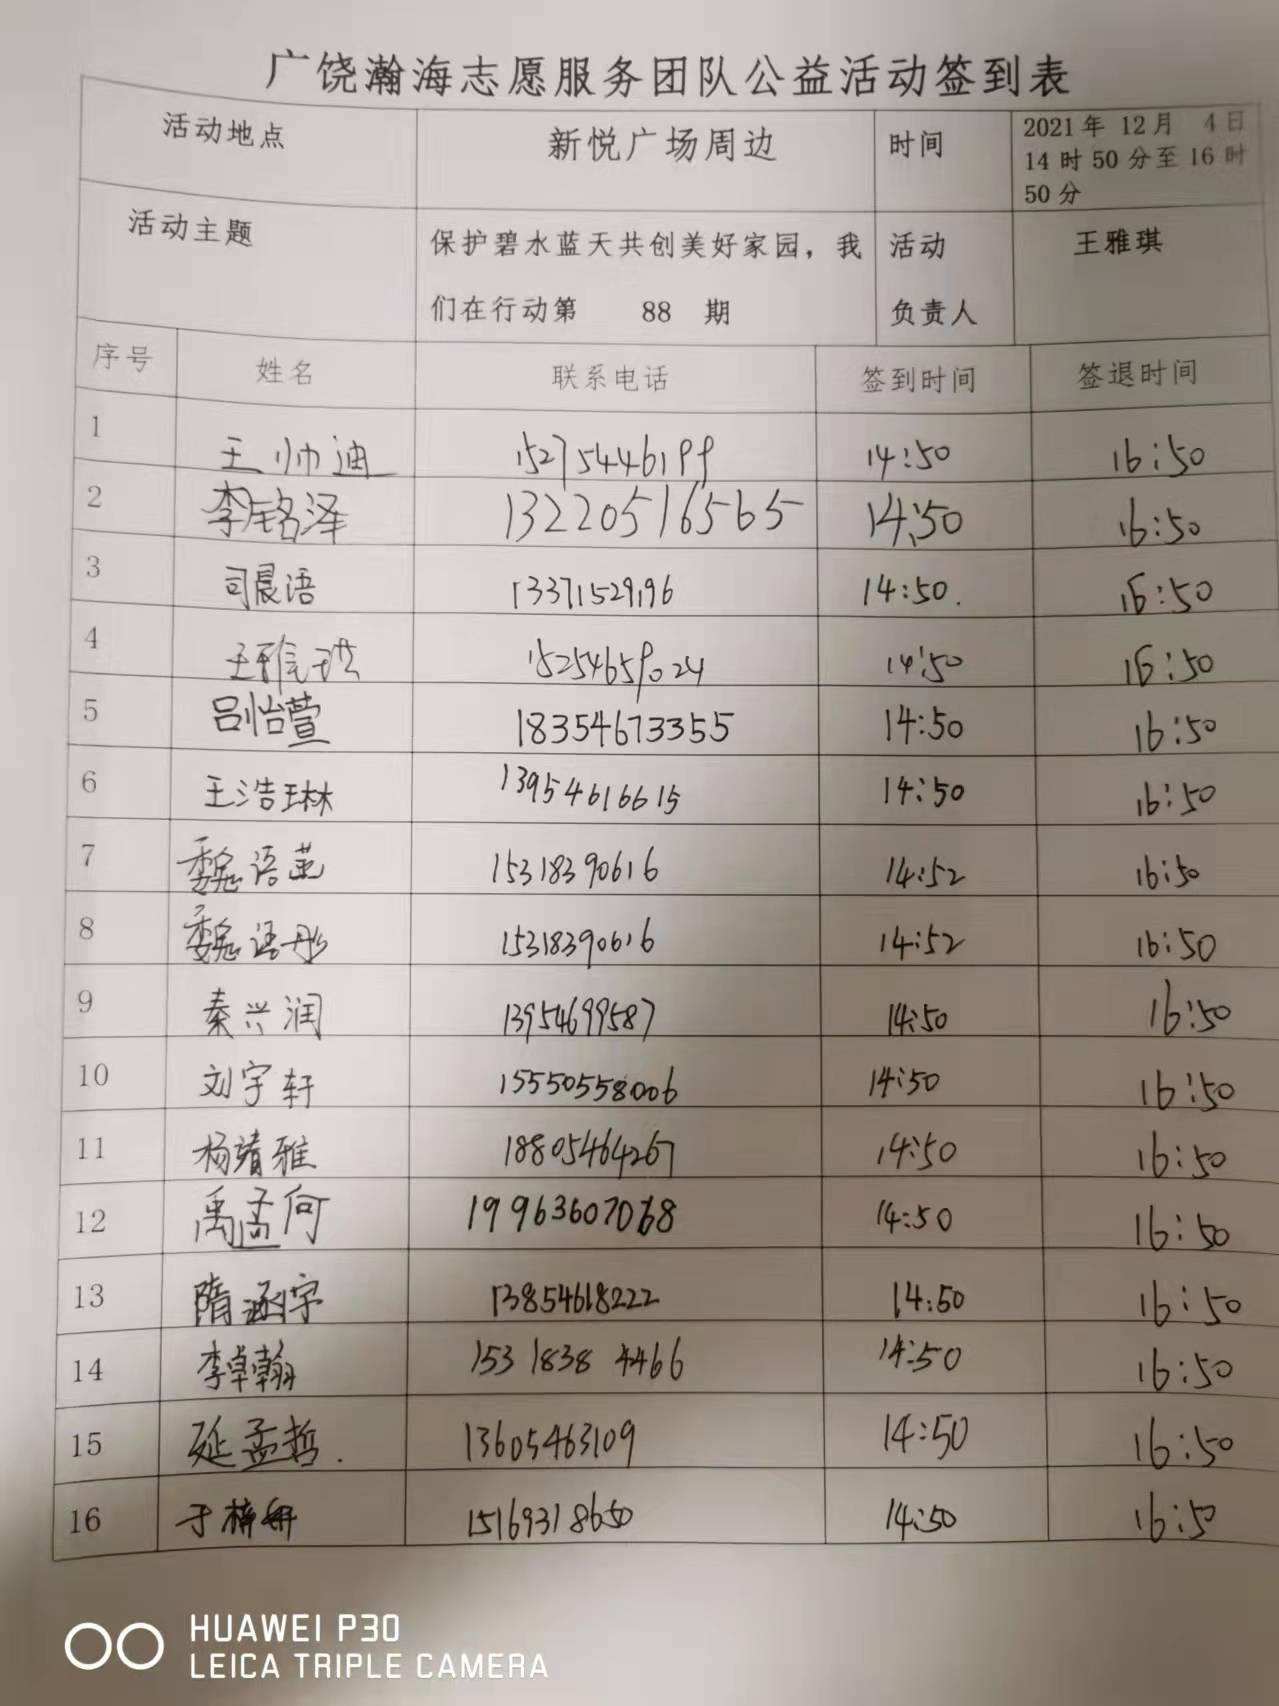 广饶瀚海志愿服务团队公益活动签到表
活动地点 新悦广场周边 时间 2021年 12月 4日
14时50分至16时
50分
活动主题 保护碧水蓝天共创美好家园，我 活动 王雅琪
们在行动第 88 期 负责人
序号 姓名 联系电话 签到时间 签退时间
1 王帅迪 15275446199 14:50 16:50
2 李铭泽 13220516565 14:50 16:50
3 司晨语 13371529196 14:50. 16:50
4 王雅琪 15254659024 14:50 16:50
5 吕怡萱 18354673355 14:50 16:50
6 王浩琳 13954616615 14:50 16:50
7 魏语 15318390616 14:52 16:50
8 魏语彤 15318390616 14:52 16:50
9 秦兴润 13954699587 14:50 16:50
10 刘宇轩 15550558006 14:50 16:50
11 杨靖雅 18805464267 14:50 16:50
12 禹孟何 19963607068 14:50 16:50
13 隋涵宇 13854618222 14:50 16:50
14 李卓翰 1531838 4466 14:50 16:50
15 延孟哲. 13605463109 14:50 16:50
16 于梓冉 15169318650 14:50 16:50
HUAWEI P30
LEICA TRIPLE CAMERA